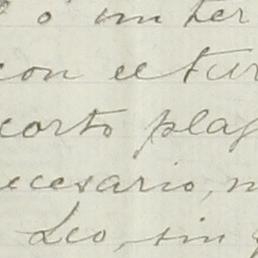 ó inter
con el tur
corto plaz
ecesario, n
Leo, sin q